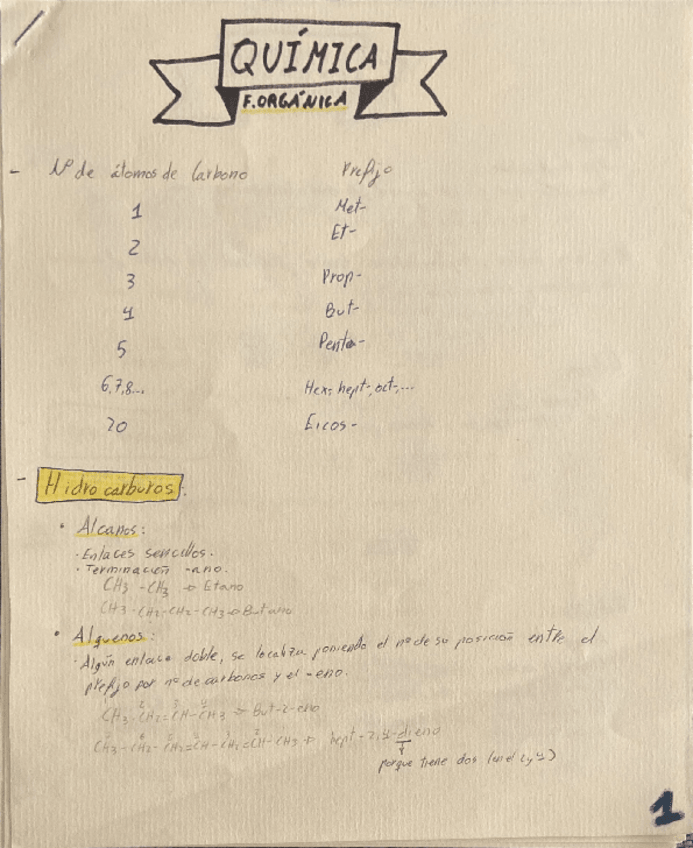 QUÍMICA
F. ORGÁNICA
- Nº de átomos de Carbono Prefijo
1 Met-
2 Et-
3 Prop-
4 But-
5 Penta-
6,7,8... Hex-, hept-, oct-,...
20 Eicos-
- Hidrocarburos:
• Alcanos:
· Enlaces sencillos.
· Terminación -ano.
CH3 - CH3 → Etano
CH3 - CH2 - CH2 - CH3 → Butano
• Alquenos:
· Algún enlace doble, se localiza poniendo el nº de su posición entre el
prefijo por nº de carbonos y el -eno.
CH3 - CH2 = CH - CH3 → But-2-eno
CH3 - CH2 - CH2 = CH - CH2 = CH - CH3 → hept-2,4-dieno
porque tiene dos (en el 2 y 4)
1